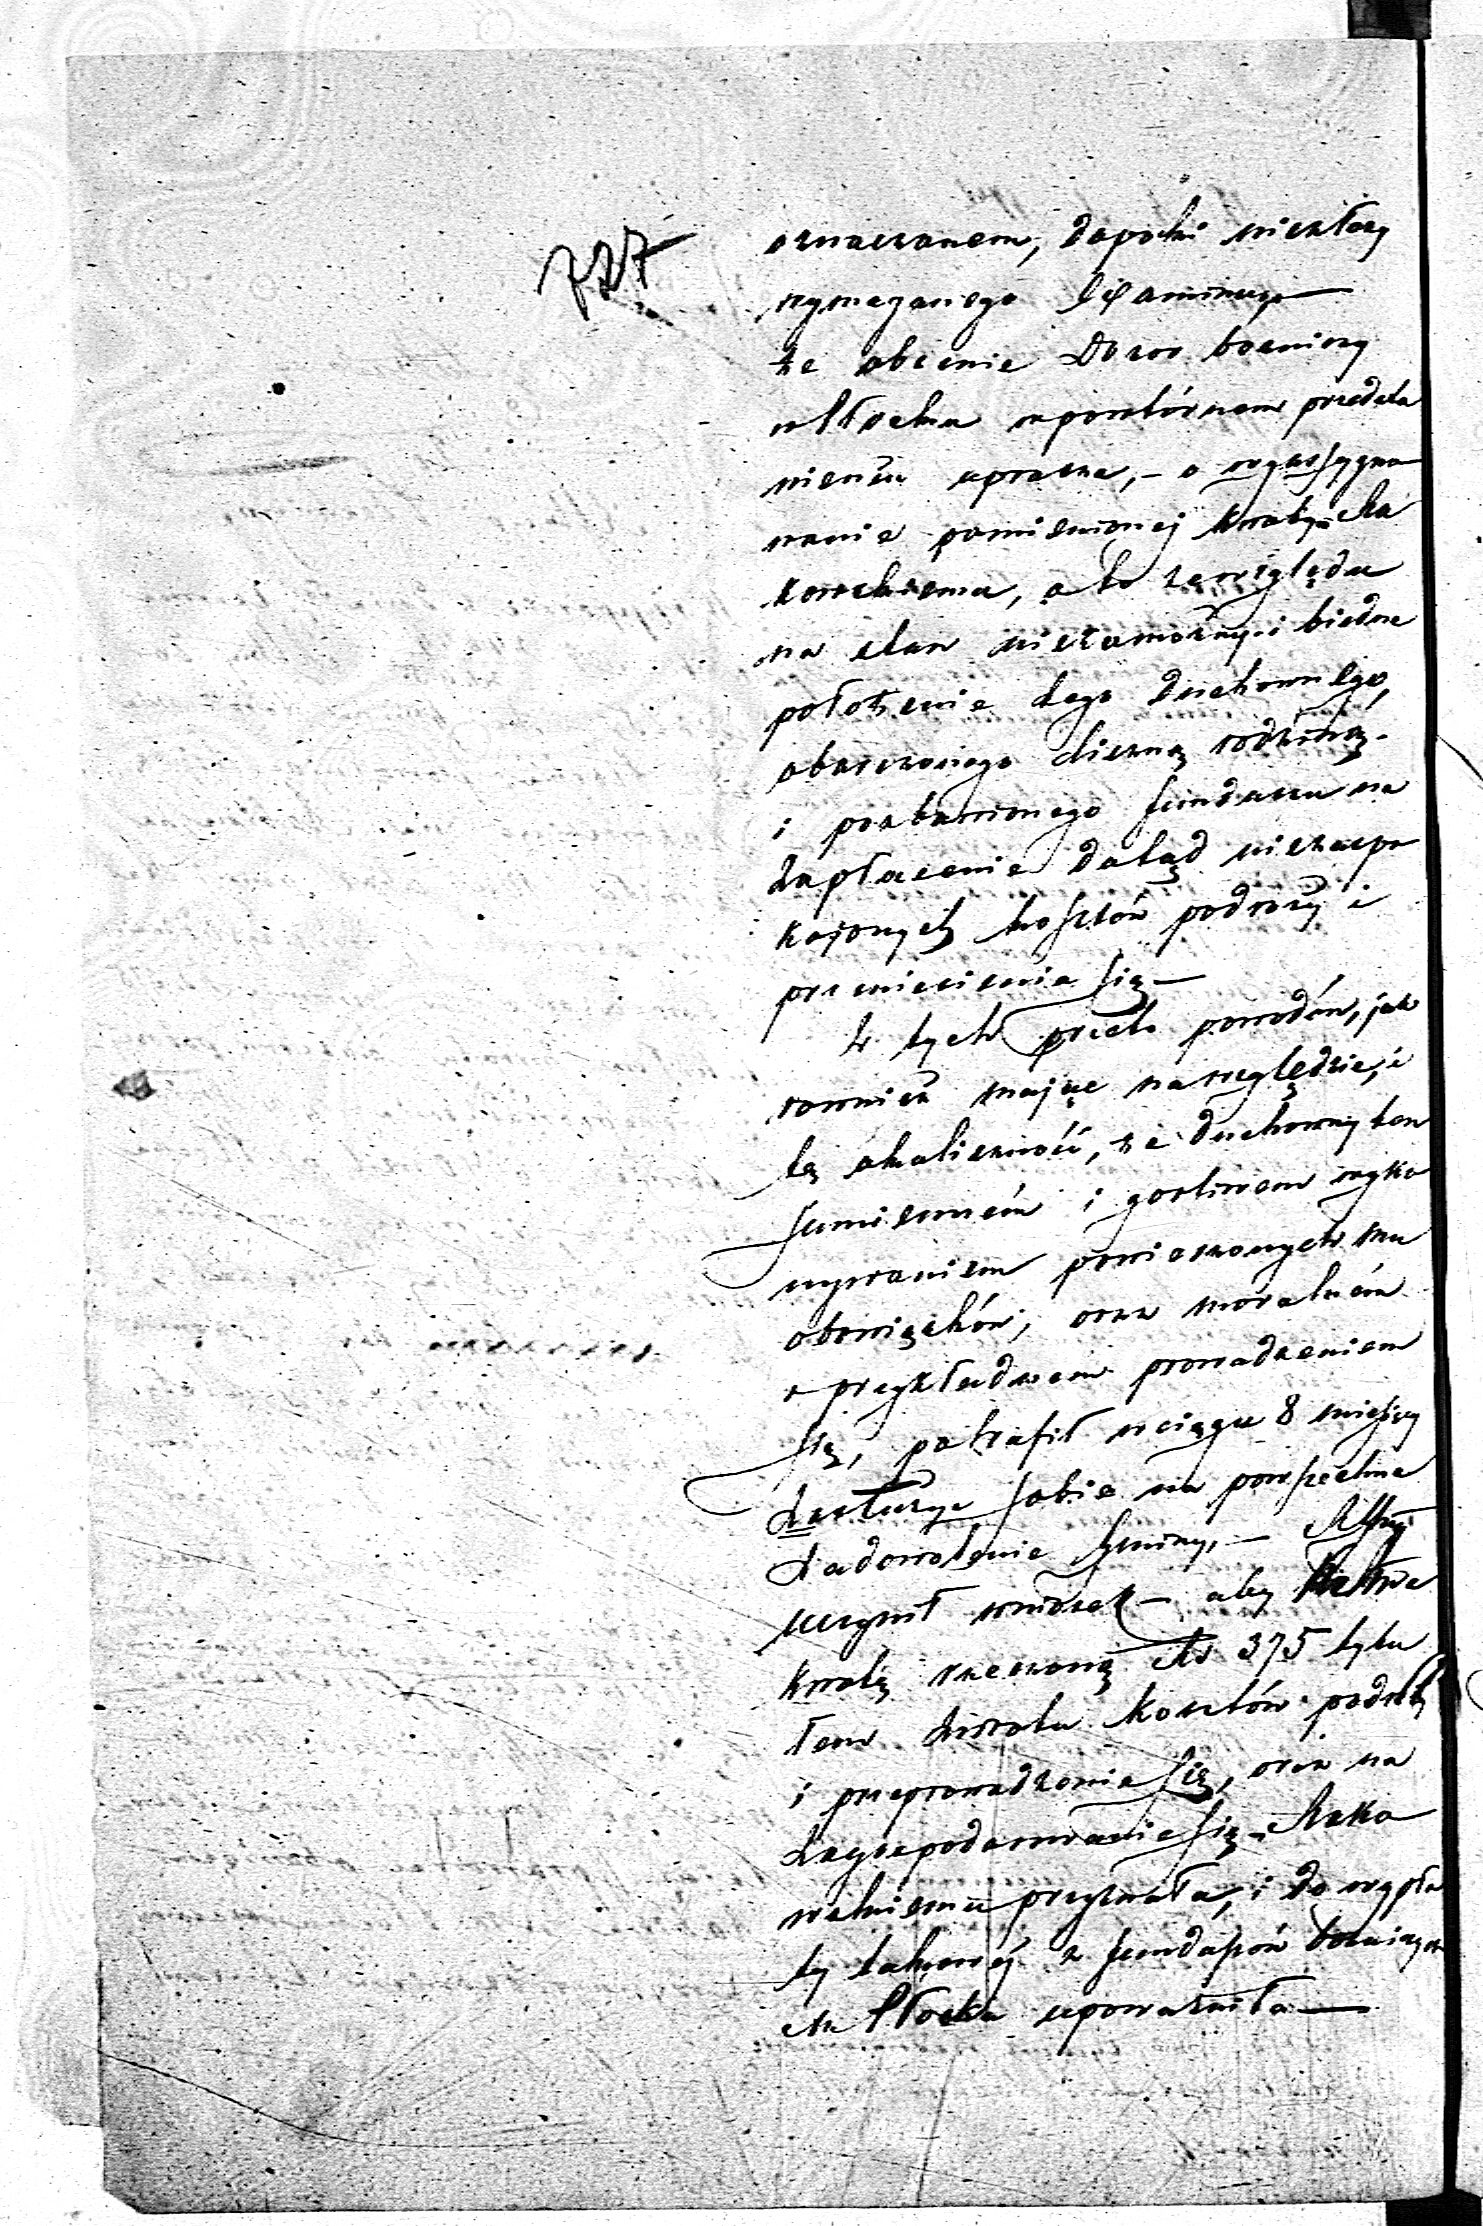 727
oznaczonem, dopóki niezłoży
wymaganego Examinu,—
że obecnie Dozor bożniczy
w Płocku w powtórnem przedsta
wieniu uprasza, – o wyassygno
wanie pomienionej kwoty
a to ze względu
na stan niezamożny i biedne
położenie tego Duchownego,
obarczonego liczną rodziną.
i pozbawionego funduszu na
zapłacenie dotąd niezaspo
kojonych kosztów podroży i
przeniesienia się—
Z tych przeto powodów, jak
rownież mając na względzie, i
tę okoliczność, że duchowny ten
sumiennem i gorliwem wyko
nywaniem powierzonych mu
obowięzków, oraz moralném
i przykładnem prowadzeniem
się, potrafił w ciągu 8 miesięcy
zasłużyć sobie na powszechne
zadowolenie Gminy, —
uczynił wniosek – aby
kwotę rzeczoną Rs 375 tytu
łem zwrotu kosztów podróży
i przeprowadzenia się, oraz na
zagospodarowanie się
przyznała, i do wypła
ty takowéj z funduszów bożniczych
m Płocka upoważniła—